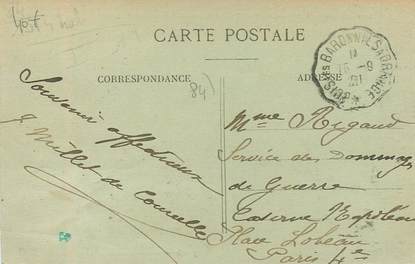 CARTE POSTALE
CORRESPONDANCE
ADRESSE
84)
Souvenir affectueux
Millet de Courcelle
Mme Rigaud
Service des Dommages
de Guerre
Caserne Napoléon
Place Lobeau
Paris 4e